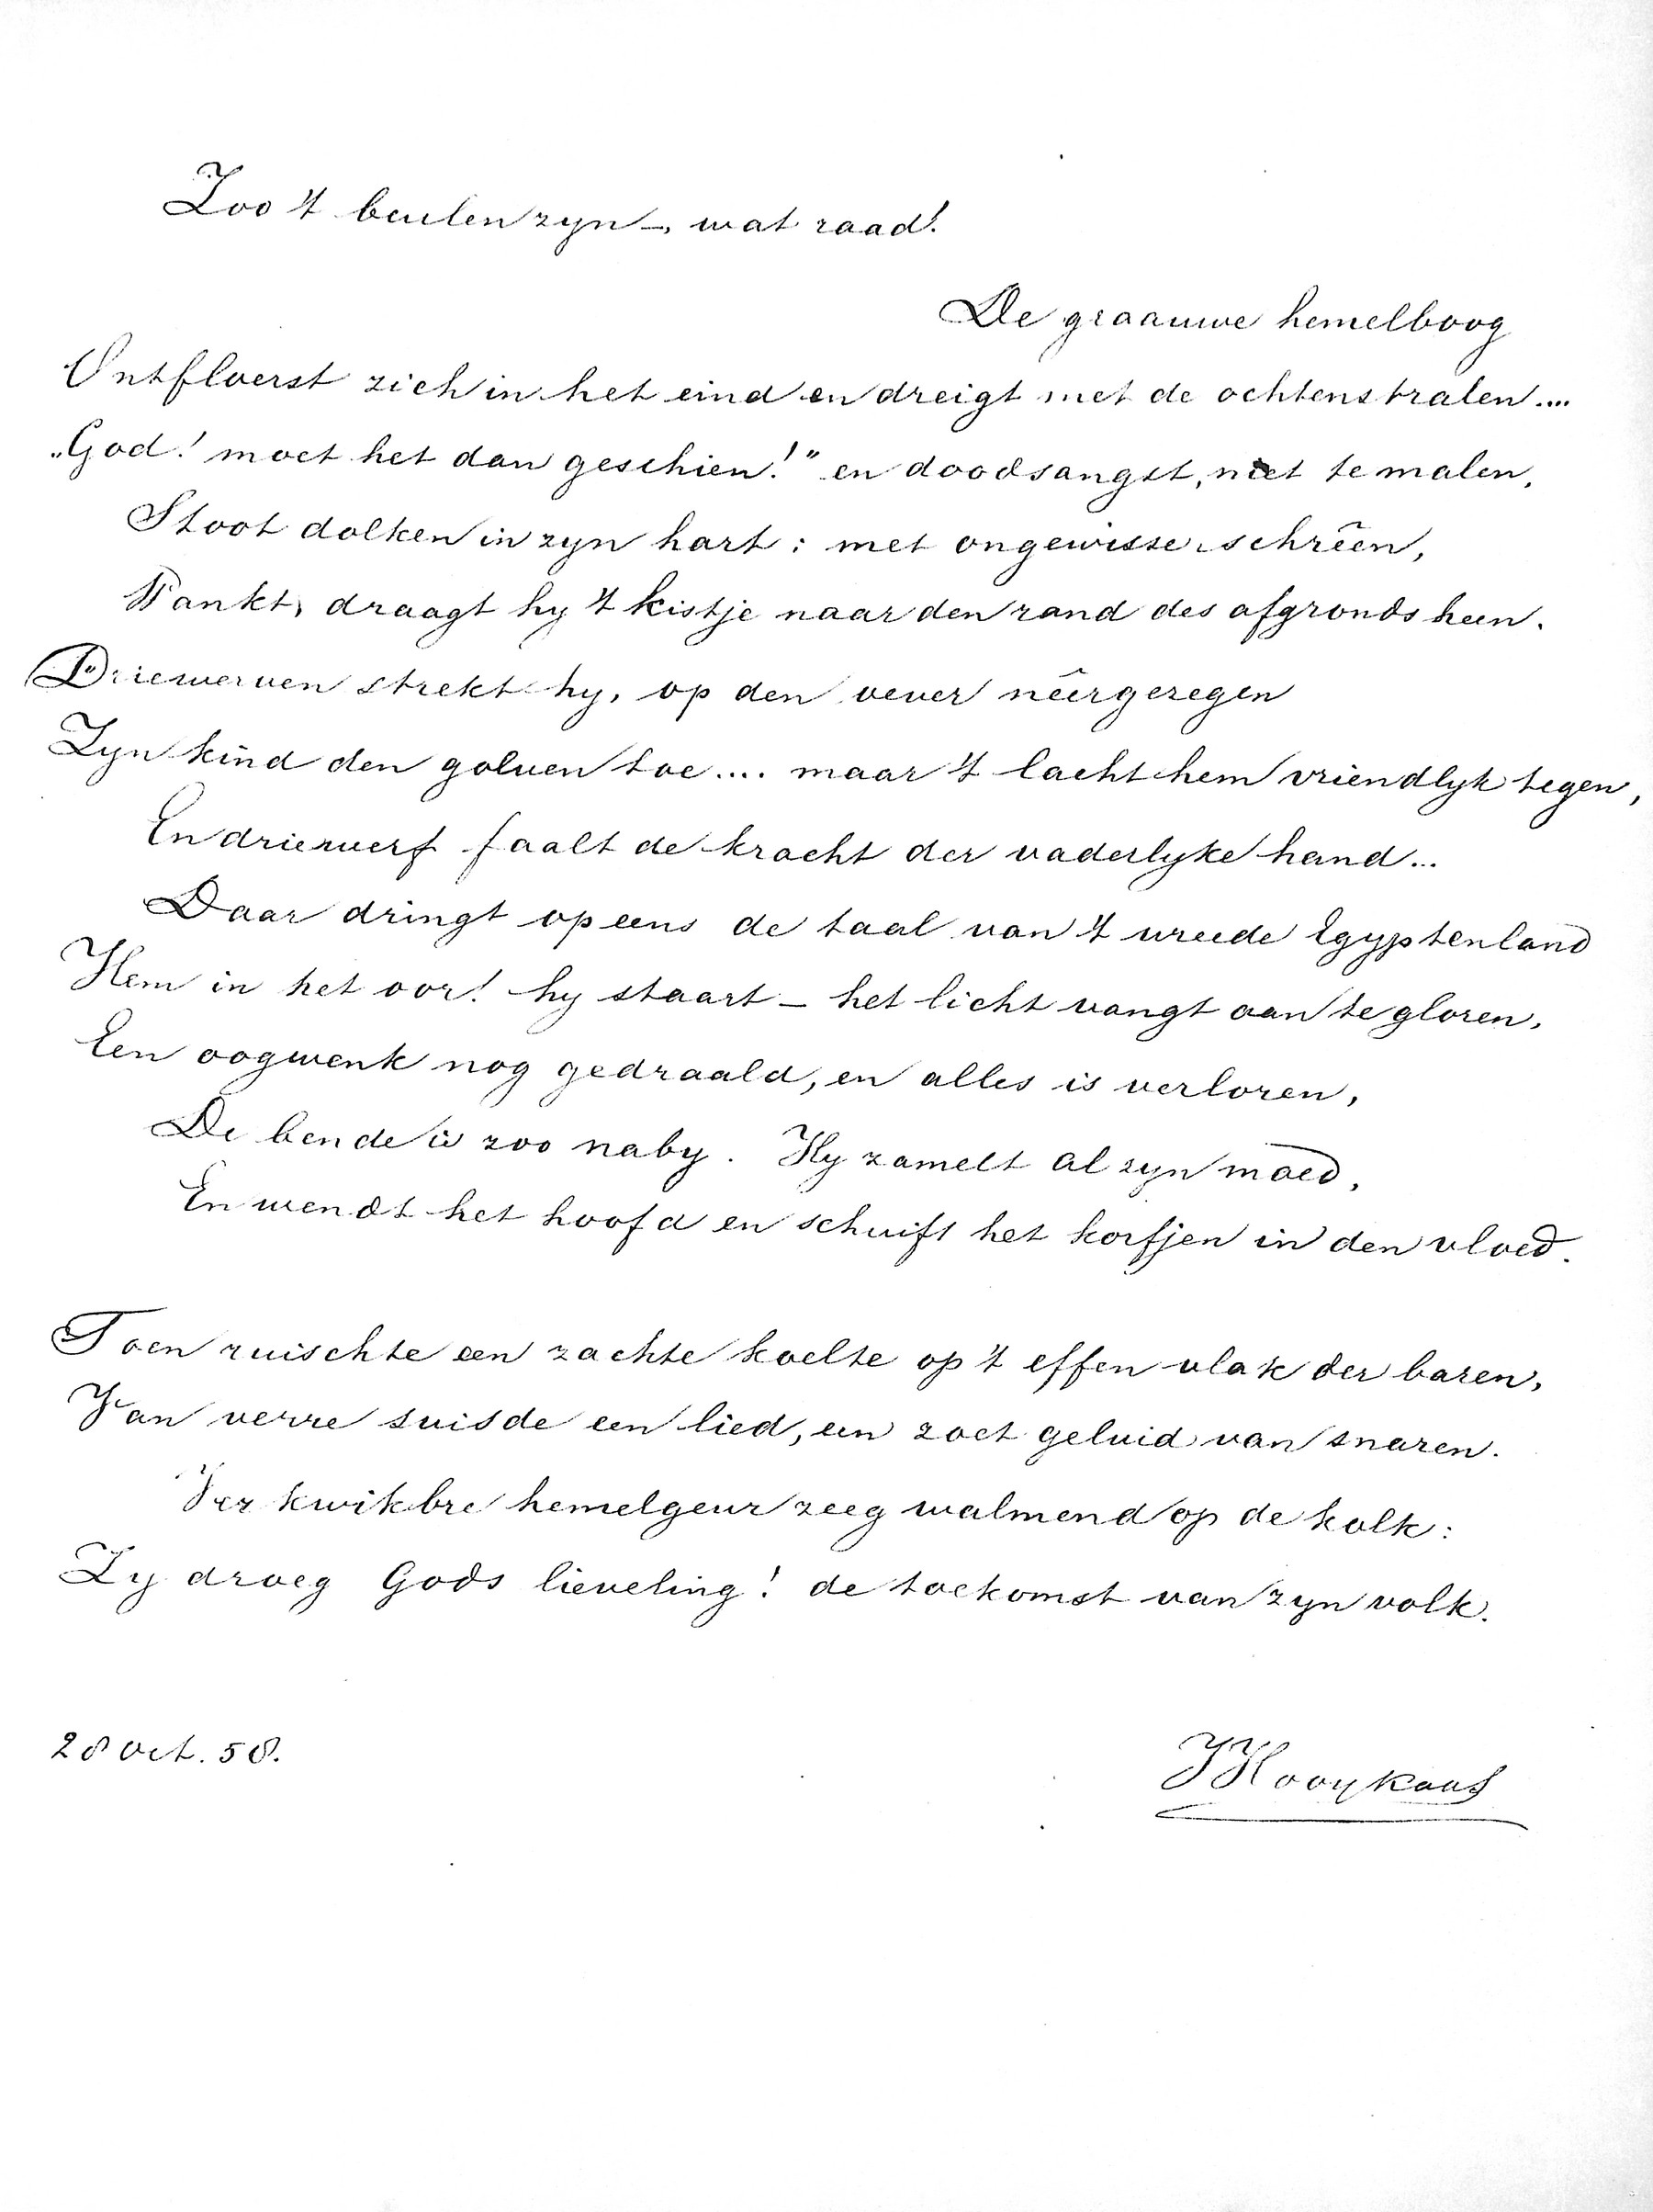 Zoo 't beulen zyn –, wat raad!
De graauwe hemelboog
Ontfloerst zich in het eind en dreigt met de ochtenstralen....
„God! moet het dan geschien!" en doodsangst, niet te malen,
Stoot dolken in zyn hart; met ongewisse schrêen,
Wankt, draagt hy 't kistje naar den rand des afgronds heen.
Driewerven strekt hy, op den oever nêergezegen
Zyn kind den golven toe.... maar 't lacht hem vriendlyk tegen,
En driewerf faalt de kracht der vaderlyke hand...
Daar dringt opeens de taal van 't wreede Egyptenland
Hem in het oor! hy staart – het licht vangt aan te gloren,
Een oogwenk nog gedraald, en alles is verloren,
De bende is zoo naby. Hy zamelt al zyn moed,
En wendt het hoofd en schuift het korfjen in den vloed.
Toen ruischte een zachte koelte op 't effen vlak der baren,
Van verre suisde een lied, een zoet geluid van snaren.
Verkwikbre hemelgeur zeeg walmend op de kolk:
Zy droeg Gods lieveling! de toekomst van zyn volk.
28 Oct. 58.
JHooykaas